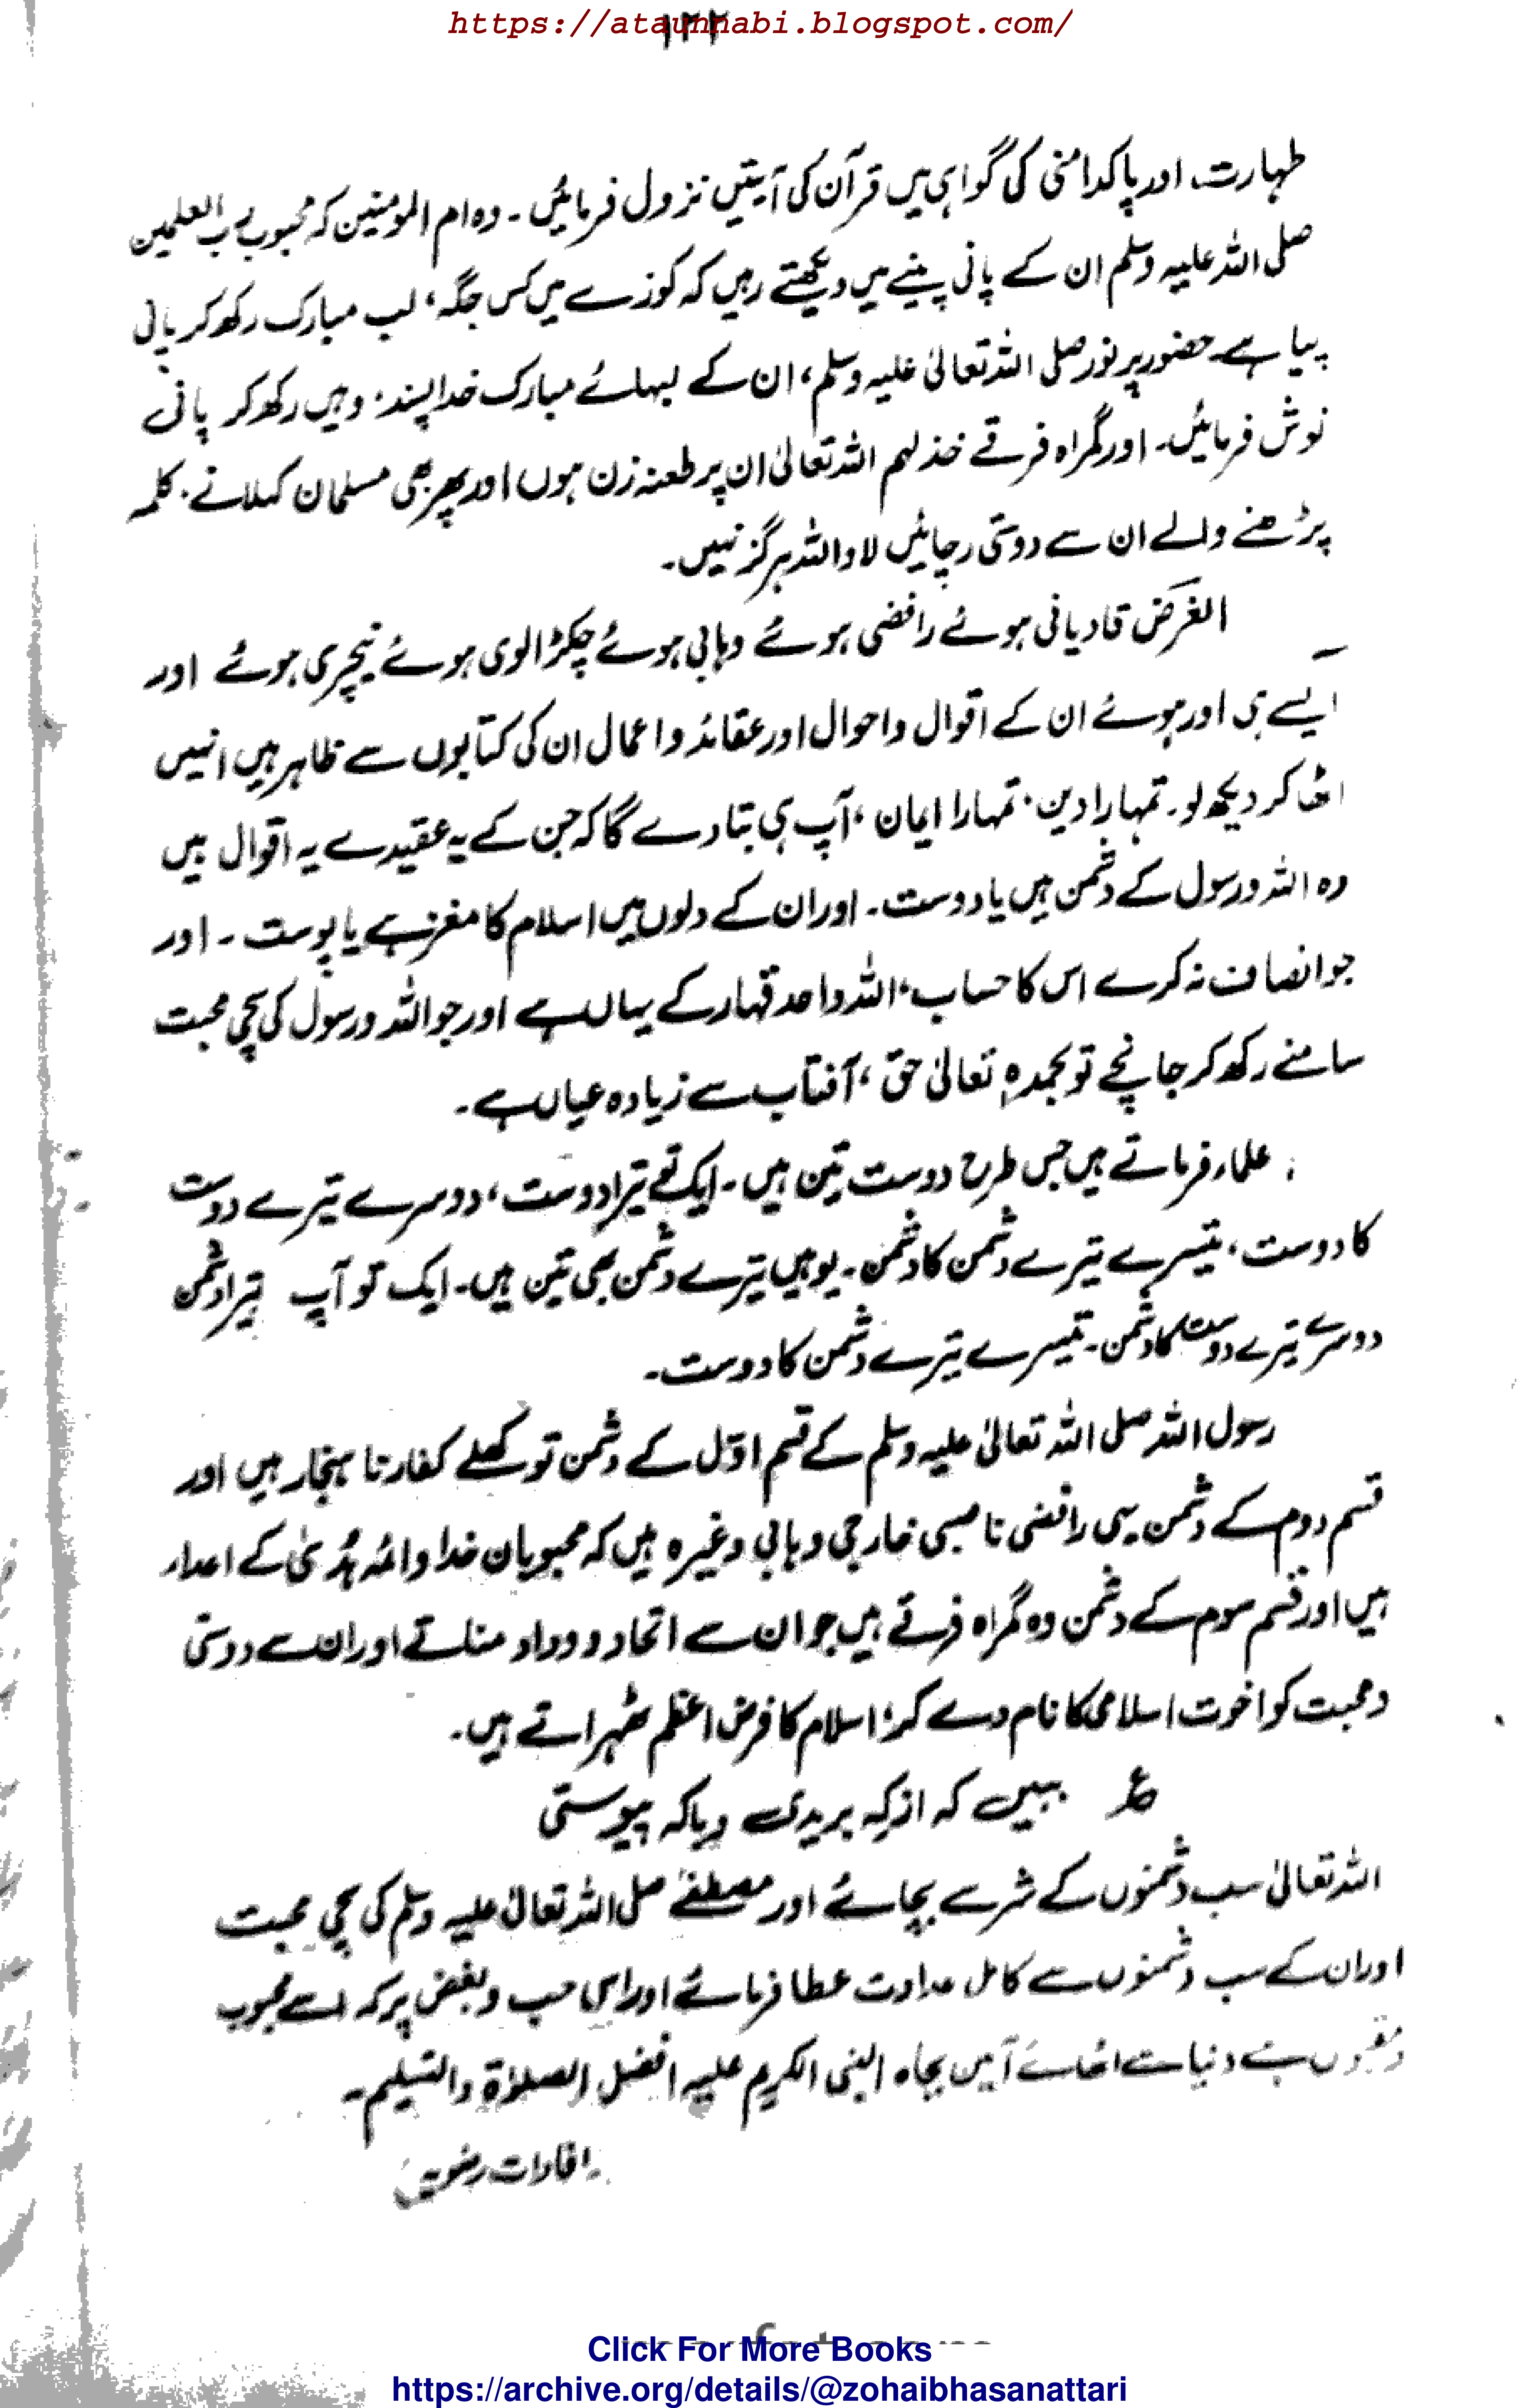 https://ataunnabi.blogspot.com/
۱۲۲
طہارت اور پاکدامنی کی گواہی میں قرآن کی آیتیں نزول فرمائیں ۔ وہ ام المومنین کہ محبوب رب العلمین
صلی اللہ علیہ وسلم ان کے پانی پینے میں دیکھتے رہیں کہ کوزے میں کس جگہ، لب مبارک رکھ کر پانی
پیا ہے حضور پر نور صلی اللہ تعالیٰ علیہ وسلم، ان کے لبہائے مبارک خدا پسند، وہیں رکھ کر پانی
نوش فرمائیں۔ اور گمراہ فرقے خذلہم اللہ تعالیٰ ان پر طعنہ زن ہوں اور پھر بھی مسلمان کہلاتے، کلمہ
پڑھنے والے ان سے دوستی رچائیں لا واللہ ہرگز نہیں۔
الغرض قادیانی ہوئے رافضی ہوئے وہابی ہوئے چکڑالوی ہوئے نیچری ہوئے اور
ایسے ہی اور ہوئے ان کے اقوال واحوال اور عقائد واعمال ان کی کتابوں سے ظاہر ہیں انہیں
اٹھا کر دیکھ لو۔ تمہارا دین، تمہارا ایمان، آپ ہی بتا دے گا کہ جن کے یہ عقیدے یہ اقوال ہیں
وہ اللہ ورسول کے دشمن ہیں یا دوست۔ اور ان کے دلوں میں اسلام کا مغز ہے یا پوست ۔ اور
جو انصاف نہ کرے اس کا حساب، اللہ واحد قہار کے یہاں ہے اور جو اللہ ورسول کی سچی محبت
سامنے رکھ کر جانچے تو بحمدہٖ تعالیٰ حق، آفتاب سے زیادہ عیاں ہے۔
علماء فرماتے ہیں جس طرح دوست تین ہیں۔ ایک تو تیرا دوست، دوسرے تیرے دوست
کا دوست، تیسرے تیرے دشمن کا دشمن۔ یوہیں تیرے دشمن بھی تین ہیں۔ ایک تو آپ تیرا دشمن
دوسرے تیرے دوست کا دشمن۔ تیسرے تیرے دشمن کا دوست۔
رسول اللہ صلی اللہ تعالیٰ علیہ وسلم کے قسم اوّل کے دشمن تو کھلے کفار نا ہنجار ہیں اور
قسم دوم کے دشمن یہی رافضی ناصبی خارجی وہابی وغیرہ ہیں کہ محبوبان خدا وائمہ ہدیٰ کے اعداء
ہیں اور قسم سوم کے دشمن وہ گمراہ فرقے ہیں جو ان سے اتحاد ووداد مناتے اور ان سے دوستی
ومحبت کو اخوت اسلامی کا نام دے کر، اسلام کا فرض اعظم ٹھہراتے ہیں۔
ع ببیں کہ از کہ بریدی وبا کہ پیوستی
اللہ تعالیٰ سب دشمنوں کے شر سے بچائے اور مصطفےٰ صلی اللہ تعالیٰ علیہ وسلم کی سچی محبت
اور ان کے سب دشمنوں سے کامل عداوت عطا فرمائے اور اسی حب وبغض پر کہ اسے محبوب
دنیا سے اٹھائے آمین بجاہ النبی الکریم علیہ افضل الصلوٰۃ والتسلیم۔
افادات رضویہ
Click For More Books
https://archive.org/details/@zohaibhasanattari